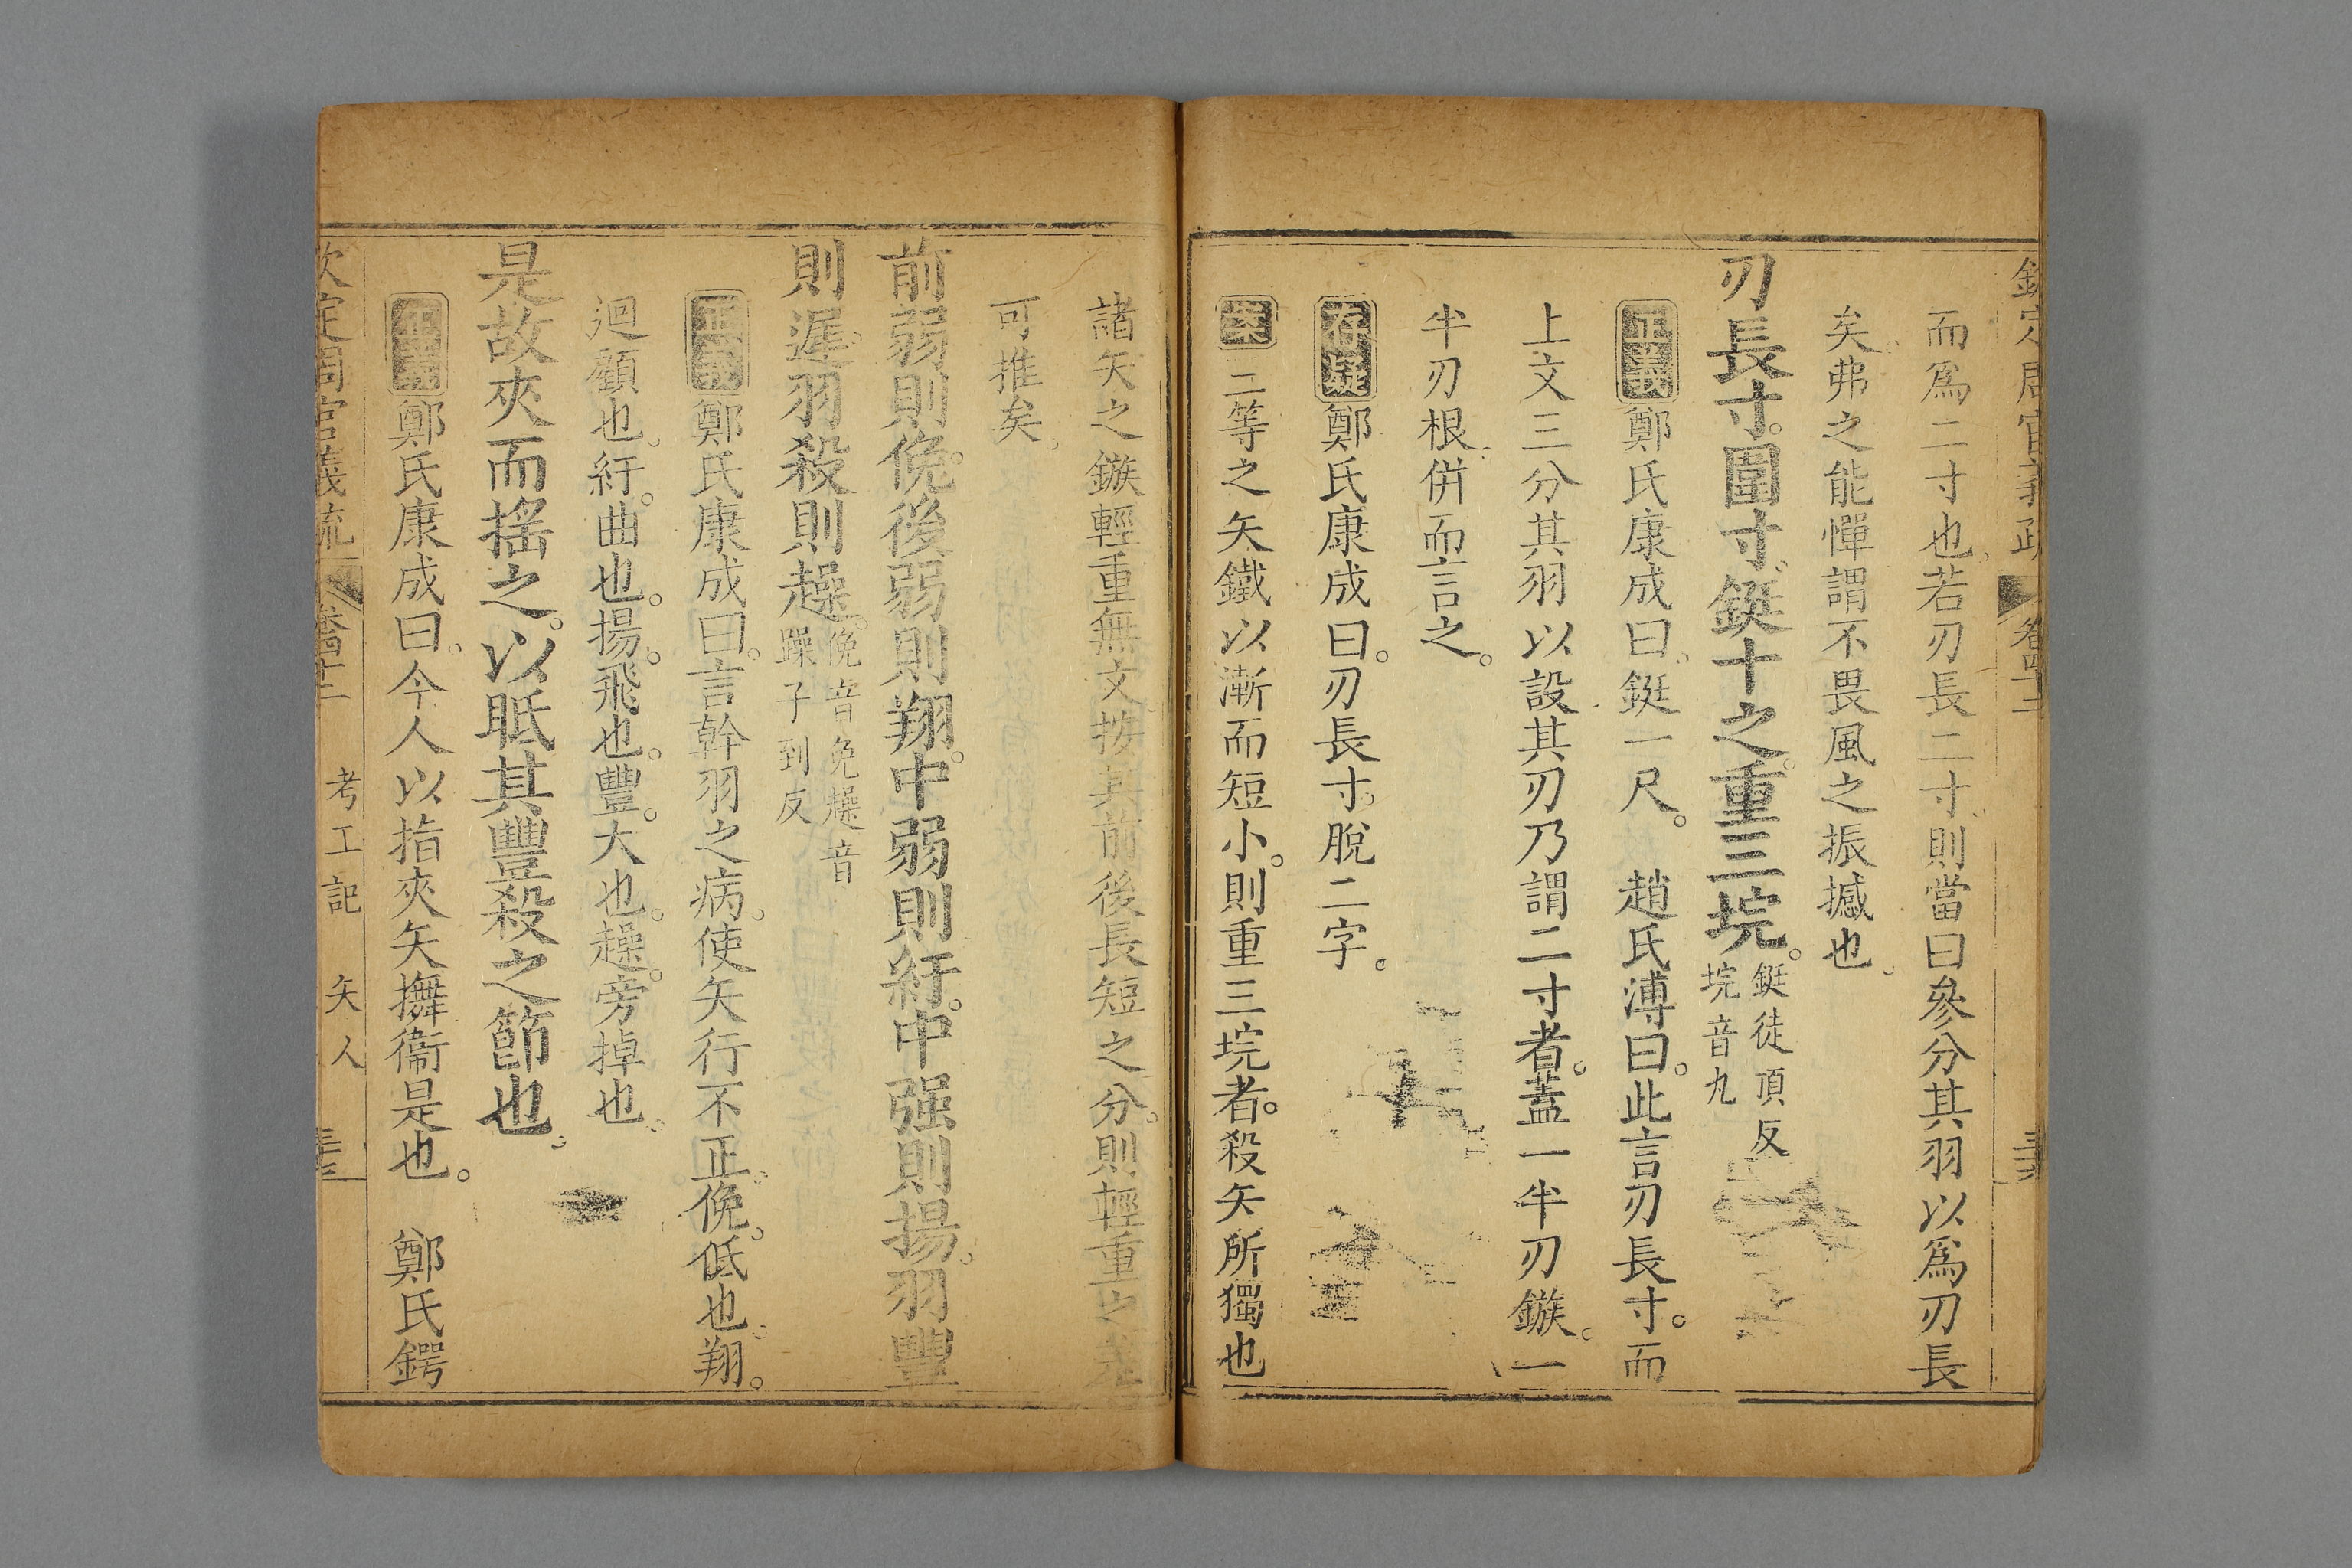 而爲二寸也若刃長二寸則當曰參分其羽以爲刃長
矣弗之能憚謂不畏風之振撼也
刃長寸圍寸鋌十之重三垸
鋌徒頂反
垸音九
正義鄭氏康成曰鋌一尺。 趙氏溥曰。此言刃長寸。而
上文三分其羽以設其刃乃謂二寸者。葢一半刃鏃。一
半刃根併而言之。
存疑鄭氏康成曰。刃長寸。脫二字。
案二等之矢鐵以漸而短小。則重三垸者。殺矢所獨也
諸矢之鏃輕重無文按其前後長短之分。則輕重之差
可推矣。
前弱則俛。後弱則翔。中弱則紆。中强則揚。羽豐
則遲。羽殺則趮。
俛音免趮音
躁子到反
正義鄭氏康成曰。言幹羽之病。使矢行不正。俛。低也。翔。
迴顧也。紆。曲也。揚。飛也。豐。大也。趮。旁掉也。
是故夾而搖之。以眡其豐殺之節也。
正義鄭氏康成曰。今人以指夾矢儛衞是也。 鄭氏鍔
欽定周官義疏 卷四十二 考工記 矢人